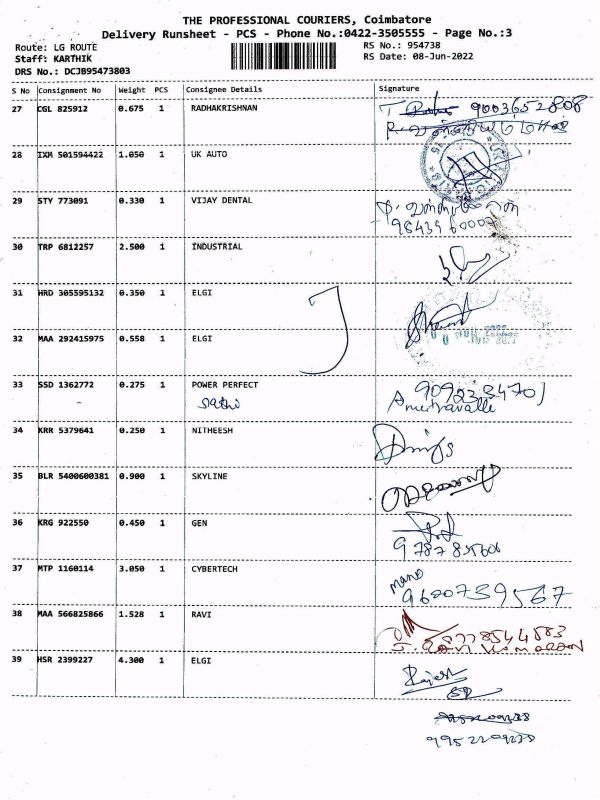 THE PROFESSIONAL COURIERS, Coimbatore
Delivery Runsheet - PCS - Phone No.:0422-3505555 - Page No.:3
Route: LG ROUTE
RS No.: 954738
Staff: KARTHIK
RS Date: 08-Jun-2022
DRS No.: DCJB95473803
S No Consignment No Weight PCS Consignee Details Signature
27 CGL 825912 0.675 1 RADHAKRISHNAN 9003652808
28 IXM 501594422 1.050 1 UK AUTO
29 STY 773091 0.330 1 VIJAY DENTAL
30 TRP 6812257 2.500 1 INDUSTRIAL
31 HRD 305595132 0.350 1 ELGI
32 MAA 292415975 0.558 1 ELGI
33 SSD 1362772 0.275 1 POWER PERFECT
34 KRR 5379641 0.250 1 NITHEESH
35 BLR 5400600381 0.900 1 SKYLINE
36 KRG 922550 0.450 1 GEN
37 MTP 1160114 3.050 1 CYBERTECH mano
9600739567
38 MAA 566825866 1.528 1 RAVI
39 HSR 2399227 4.300 1 ELGI Rajesh